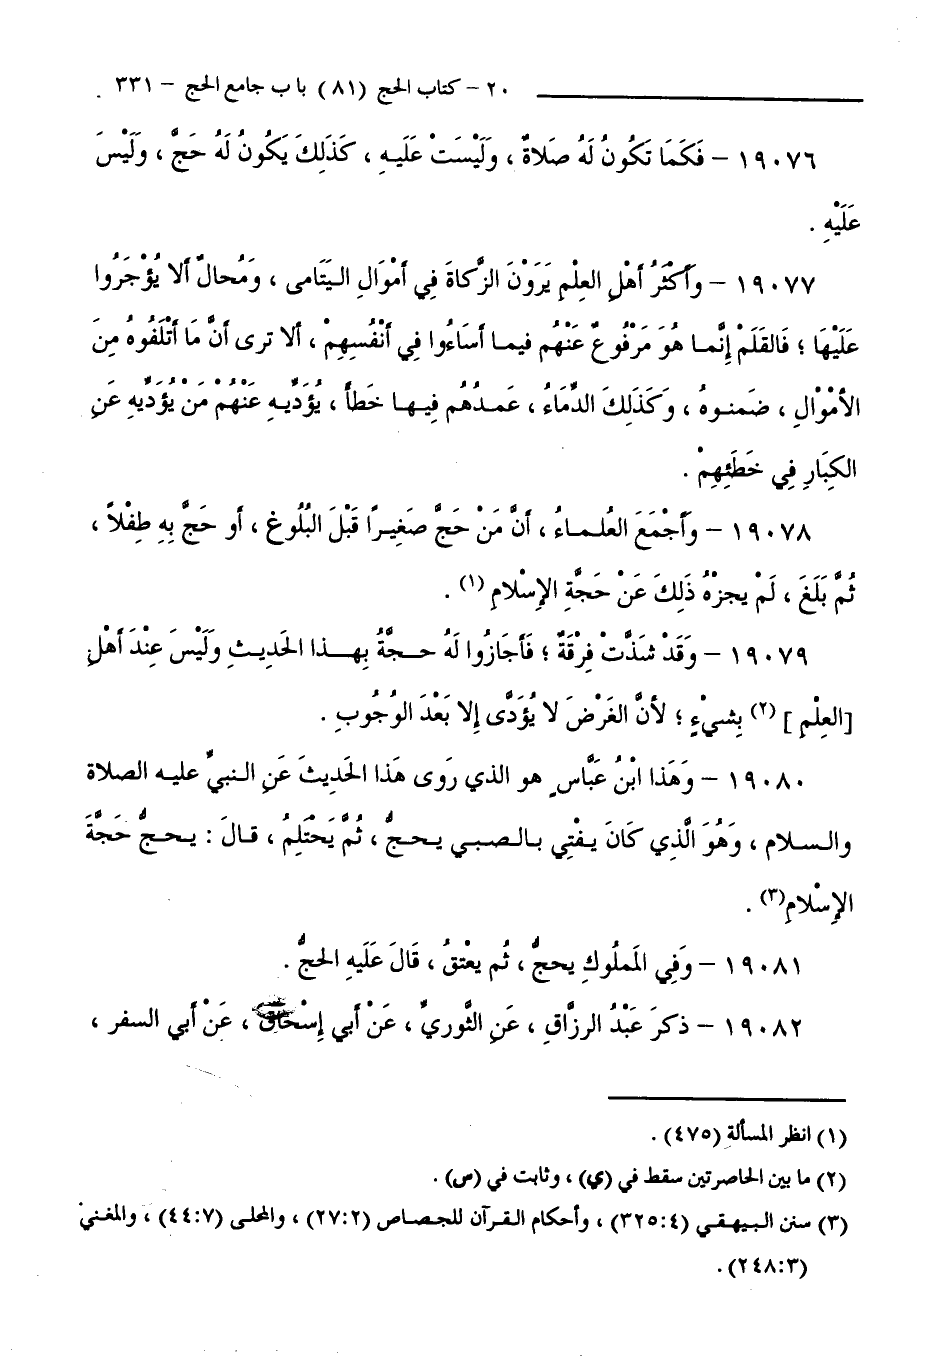 ٢٠ - كتاب الحج (٨١) باب جامع الحج - ٣٣١
١٩٠٧٦ - فَكَمَا تَكُونُ لَهُ صَلاةٌ ، وَلَيْسَتْ عَلَيهِ ، كَذَلِكَ يَكُونُ لَهُ حَجٌّ ، وَلَيْسَ
عَلَيْهِ .
١٩٠٧٧ - وَأَكْثَرُ أَهْلِ العِلْمِ يَرَوْنَ الزَّكَاةَ فِي أَمْوَالِ اليَتَامى ، وَمُحالٌ ألا يُؤْجَرُوا
عَلَيْهَا ؛ فَالقَلَمْ إِنَّما هُوَ مَرْفُوعٌ عَنْهُم فيما أَسَاءُوا فِي أَنْفُسِهِمْ ، ألا ترى أنَّ مَا أَتْلَفُوهُ مِنَ
الأمْوْالِ ، ضَمنوهُ ، وَكَذَلِكَ الدِّمَاءُ ، عَمدُهُم فيها خَطأ ، يُؤَدِّيهِ عَنْهُمْ مَنْ يُؤَدِّيهِ عَنِ
الكِبَارِ فِي خَطَئِهِمْ .
١٩٠٧٨ - وَأَجْمَعَ العُلماءُ ، أَنَّ مَنْ حَجَّ صَغِيرًا قَبْلَ البُلُوغِ ، أو حَجَّ بِهِ طِفْلاً ،
ثُمَّ بَلَغَ ، لَمْ يجزْهُ ذَلِكَ عَنْ حَجَّةِ الإِسْلامِ (١) .
١٩٠٧٩ - وَقَدْ شَذَّتْ فِرْقَةٌ ؛ فَأَجَازُوا لَهُ حجَّةُ بِهذا الحَدِيثِ وَلَيْسَ عِنْدَ أَهْلِ
[العِلْمِ] (٢) بِشيءٍ ؛ لأنَّ الفَرْضَ لا يُؤَدَّى إِلا بَعْدَ الوُجُوبِ .
١٩٠٨٠ - وَهَذا ابْنُ عَبَّاسٍ هو الذي رَوى هَذا الحَدِيثَ عَنِ النبيِّ عليه الصلاة
والسلام ، وَهُوَ الَّذِي كَانَ يفْتِي بالصبي يحجُّ ، ثُمَّ يَحْتَلِمُ ، قالَ : يحجُّ حَجَّةَ
الإِسْلامِ(٣) .
١٩٠٨١ - وَفِي المَملُوكِ يحجُّ ، ثُم يعْتقُ ، قَالَ عَلَيهِ الحجُّ .
١٩٠٨٢ - ذكرَ عَبْدُ الرزَّاقِ ، عَنِ الثَّوريِّ ، عَنْ أَبي إِسْحَاقَ ، عَنْ أَبي السفر ،
(١) انظر المسألة (٤٧٥) .
(٢) ما بين الحاصرتين سقط في (ي) ، وثابت في (ص) .
(٣) سنن البيهقي (٣٢٥:٤) ، وأحكام القرآن للجصاص (٢٧:٢) ، والمحلى (٤٤:٧) ، والمغني
(٢٤٨:٣) .